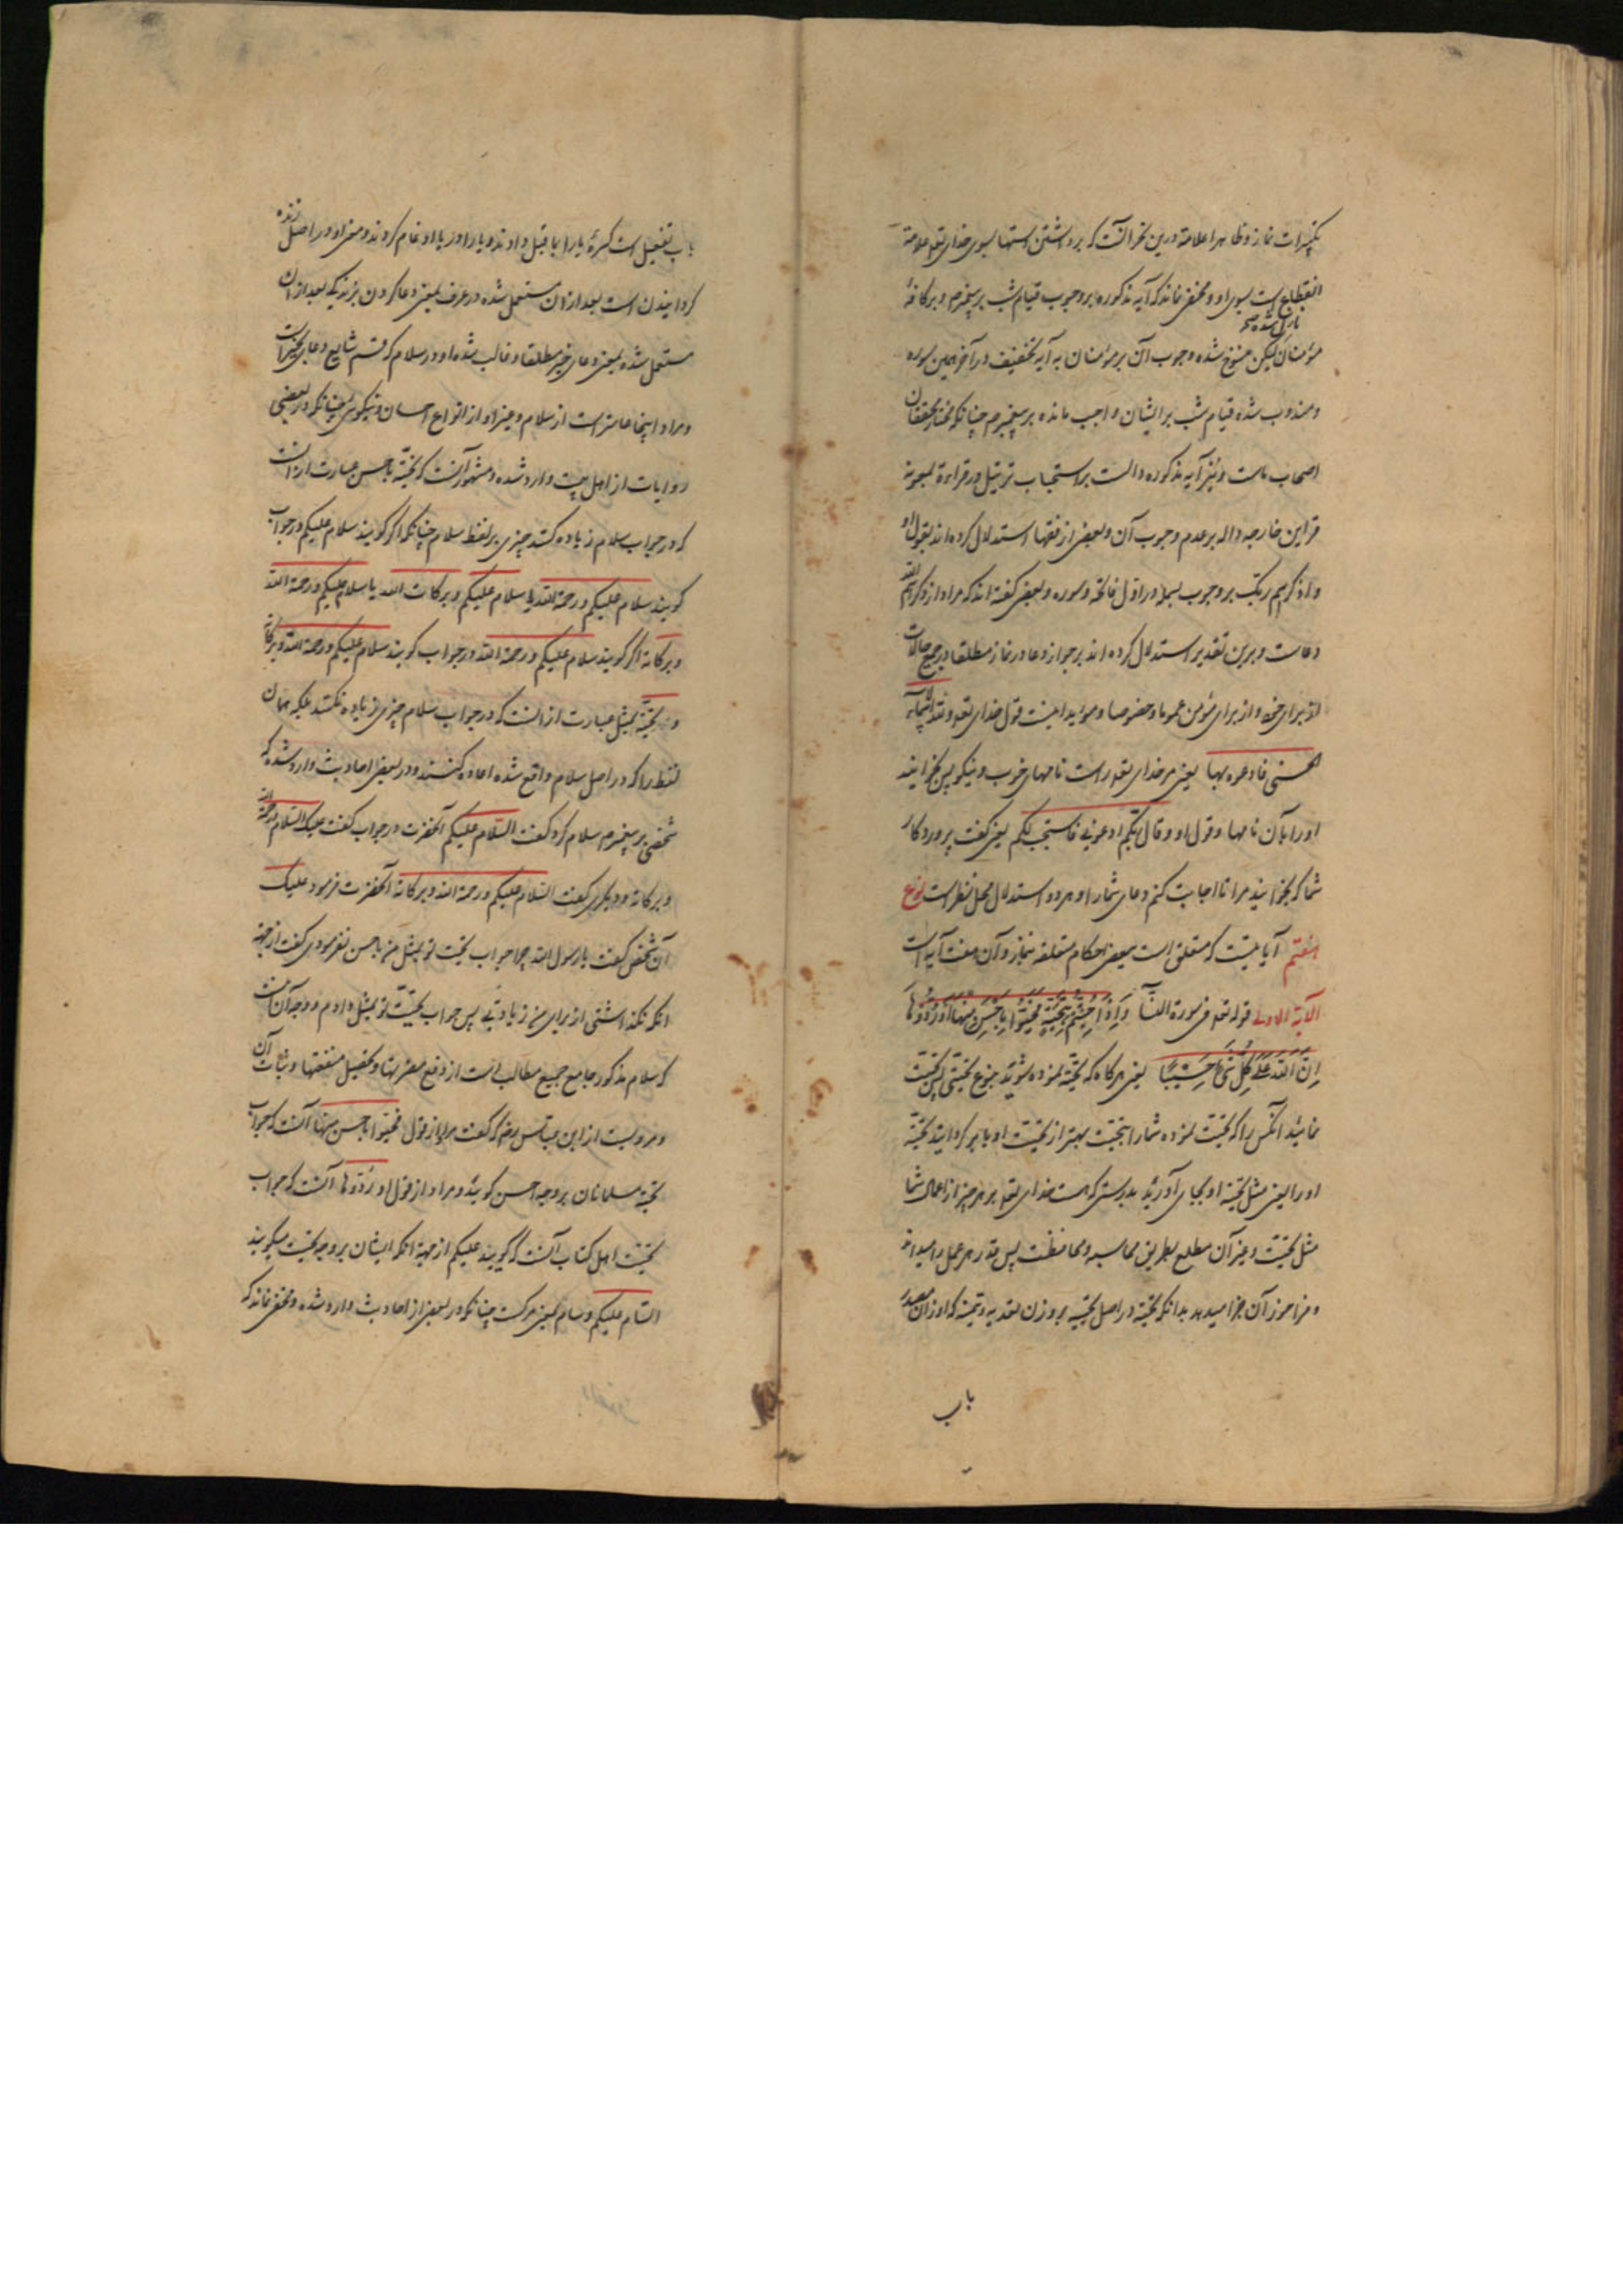 تکبیرات نماز و ظاهرا علامة درین نحر آنست که برداشتن دستها بسوی خدای تعالی علامة
انقطاع است بسوی او و مخفی نماند که آیه مذکوره بر وجوب قیام شب بر پیغمبرم و بر کافهٔ
نازل شده صح
مؤمنان لیکن منسوخ شده وجوب آن بر مؤمنان به آیه تخفیف در آخر همین سوره
و مندوب شده قیام شب بر ایشان و واجب مانده بر پیغمبرم چنانکه مختار محققان
اصحاب ماست و نیز آیه مذکوره دالست بر استحباب ترتیل در قراءة بمعونه
قراین خارجه داله بر عدم وجوب آن و بعضی از فقها استدلال کرده اند بقول او
و اذکر اسم ربک بر وجوب بسمله در اول فاتحه و سوره و بعضی گفته اند که مراد از ذکر اسم الله
دعاست و برین تقدیر استدلال کرده اند بر جواز دعا در نماز مطلقا در جمیع حالات
از برای خود و از برای مؤمن عموما و خصوصا و مؤید اینست قول خدای تعالی و لله الاسماء
الحسنی فادعوه بها یعنی مر خدای تعالی راست نامهای خوب و نیکو پس بخوانید
او را بآن نامها و قول او و قال ربکم ادعونی فاستجب لکم یعنی گفت پروردکار
شما که بخوانید مرا تا اجابت کنم دعای شما را و هر دو استدلال محل نظر است نوع
هشتم آیاتیست که متعلق است ببعضی احکام متعلقه بنماز و آن هفت آیه است
الآیة الاولی قوله تعالی فی سورة النسآ وَاِذَا حُیِّیتُمْ بِتَحِیَّةٍ فَحَیُّوا بِاَحْسَنَ مِنْهَا اَوْ رُدُّوهَا
اِنَّ اللهَ عَلَی کُلِّ شَیْءٍ حَسِیبًا یعنی هرگاه که تحیة نموده شوید بنوع تحیتی پس تحیت
نمائید آنکس را که تحیت نموده شما را بتحیت بهتر از تحیت او یا بر کردانید تحیة
او را یعنی مثل تحیة او بجای آورید بدرستی که هست خدای تعالی بر هر چیز از اعمال شما
مثل تحیت و غیر آن مطلع بطریق محاسبه و محافظت پس قدر هر عمل را میداند
و فراخور آن جزا میدهد بدانکه تحیة در اصل تحییه بر وزن تفعله که اوزان مصدر
باب
باب تفعیل است کسرهٔ یا را بما قبل دادند و یا را در یا ادغام کردند و معنی او در اصل زنده
کردانیدن است بعد از آن مستعمل شده در عرف بمعنی دعا کردن بزندگی بعد از آن
مستعمل شده بمعنی دعای خیر مطلقا و غالب شده او در سلام که قسم شایع دعای خیر است
و مراد اینجا عامتر است از سلام و غیر او از انواع احسان و نیکوئی چنانکه در بعضی
روایات از اهل بیت وارد شده و مشهور آنست که تحیّة باحسن عبارت از آنست
که در جواب سلام زیاده کنند چیزی بر لفظ سلام چنانکه اگر گویند سلام علیکم در جواب
گویند سلام علیکم و رحمة الله یا سلام علیکم و برکات الله یا سلام علیکم و رحمة الله
و برکاته اگر گویند سلام علیکم و رحمة الله در جواب گویند سلام علیکم و رحمة الله و برکاته
و تحیّة بمثل عبارت از آنست که در جواب سلام چیزی زیاده نکنند بلکه همان
لفظ را که در اصل سلام واقع شده اعاده کنند و در بعضی احادیث وارد شده که
شخصی بر پیغمبرم سلام کرد گفت السّلام علیکم آنحضرت در جواب گفت علیک السلام و رحمة الله
و برکاته و دیگری گفت السّلام علیکم و رحمة الله و برکاته آنحضرت فرمود علیک
آن شخص گفت یا رسول الله چرا جواب تحیت تو بمثل من باحسن نفرمودی گفت از جهة
آنکه نگذاشتی از برای من زیادتی پس جواب تحیّت تو بمثل دادم و وجه آن آنست
که سلام مذکور جامع جمیع مطالب است از دفع مضرتها و تحصیل منفعتها و ثبات آن
و مرویست از ابن عباس رض که گفت مراد از قول فحیّوا باحسن منها آنست که جواب
تحیّة مسلمانان بر وجه احسن گوئید و مراد از قول او رُدّوها آنست که جواب
تحیّت اهل کتاب آنست که گویند علیکم از جهة آنکه ایشان بر وجه تحیت میگویند
السّام علیکم و سام بمعنی مرگست چنانکه در بعضی از احادیث وارد شده و مخفی نماند که